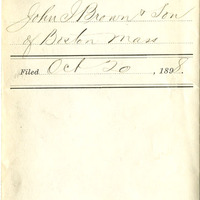 John I Brown & Son
of Boston Mass
Filed Oct 20, 1898.